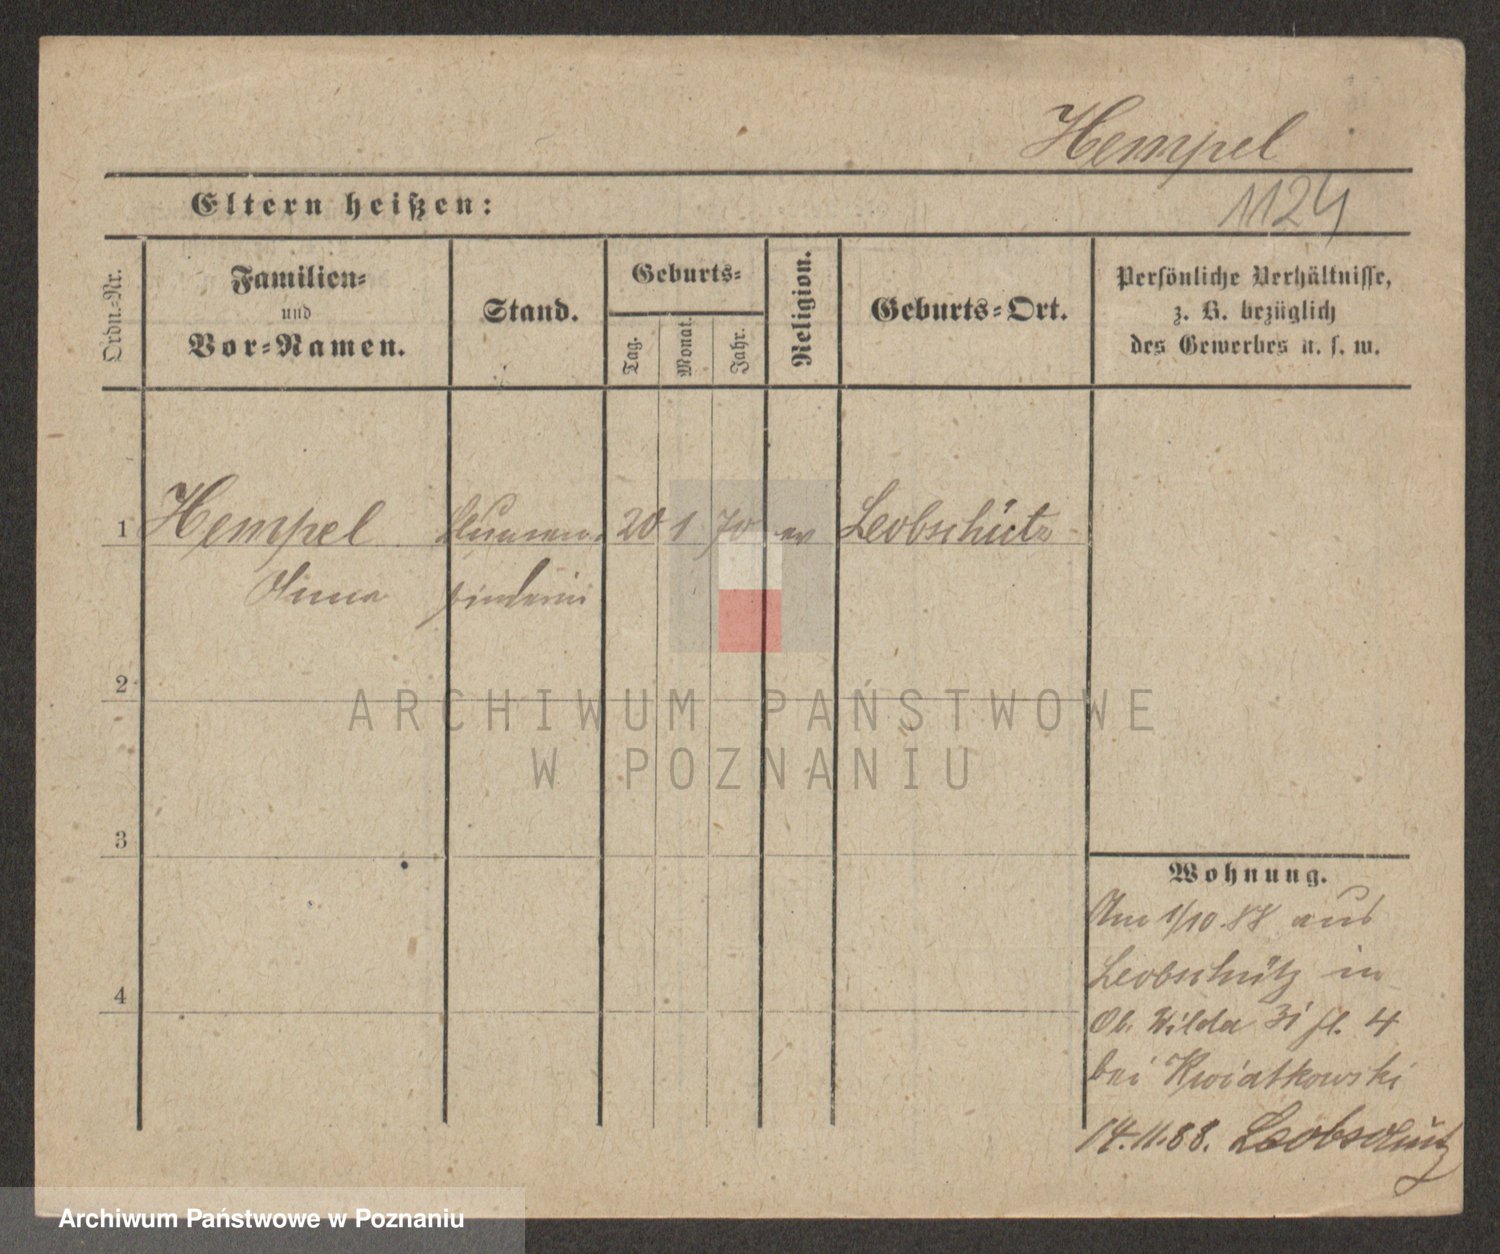 Hempel
1124
Eltern heißen:
Ordn.-Nr.
Familien-
und
Vor-Namen.
Stand.
Geburts-
Tag.
Monat.
Jahr.
Religion.
Geburts-Ort.
Persönliche Verhältnisse,
z. B. bezüglich
des Gewerbes u. s. w.
1 Hempel Blumen- 20 1 70 ev Leobschütz
Anna binderin
2
3
4
Wohnung.
Am 1/10.88 aus
Leobschütz in
Ob. Wilda 31 fl. 4
bei Kwiatkowski
14.11.88. Leobschütz
ARCHIWUM PAŃSTWOWE
W POZNANIU
Archiwum Państwowe w Poznaniu